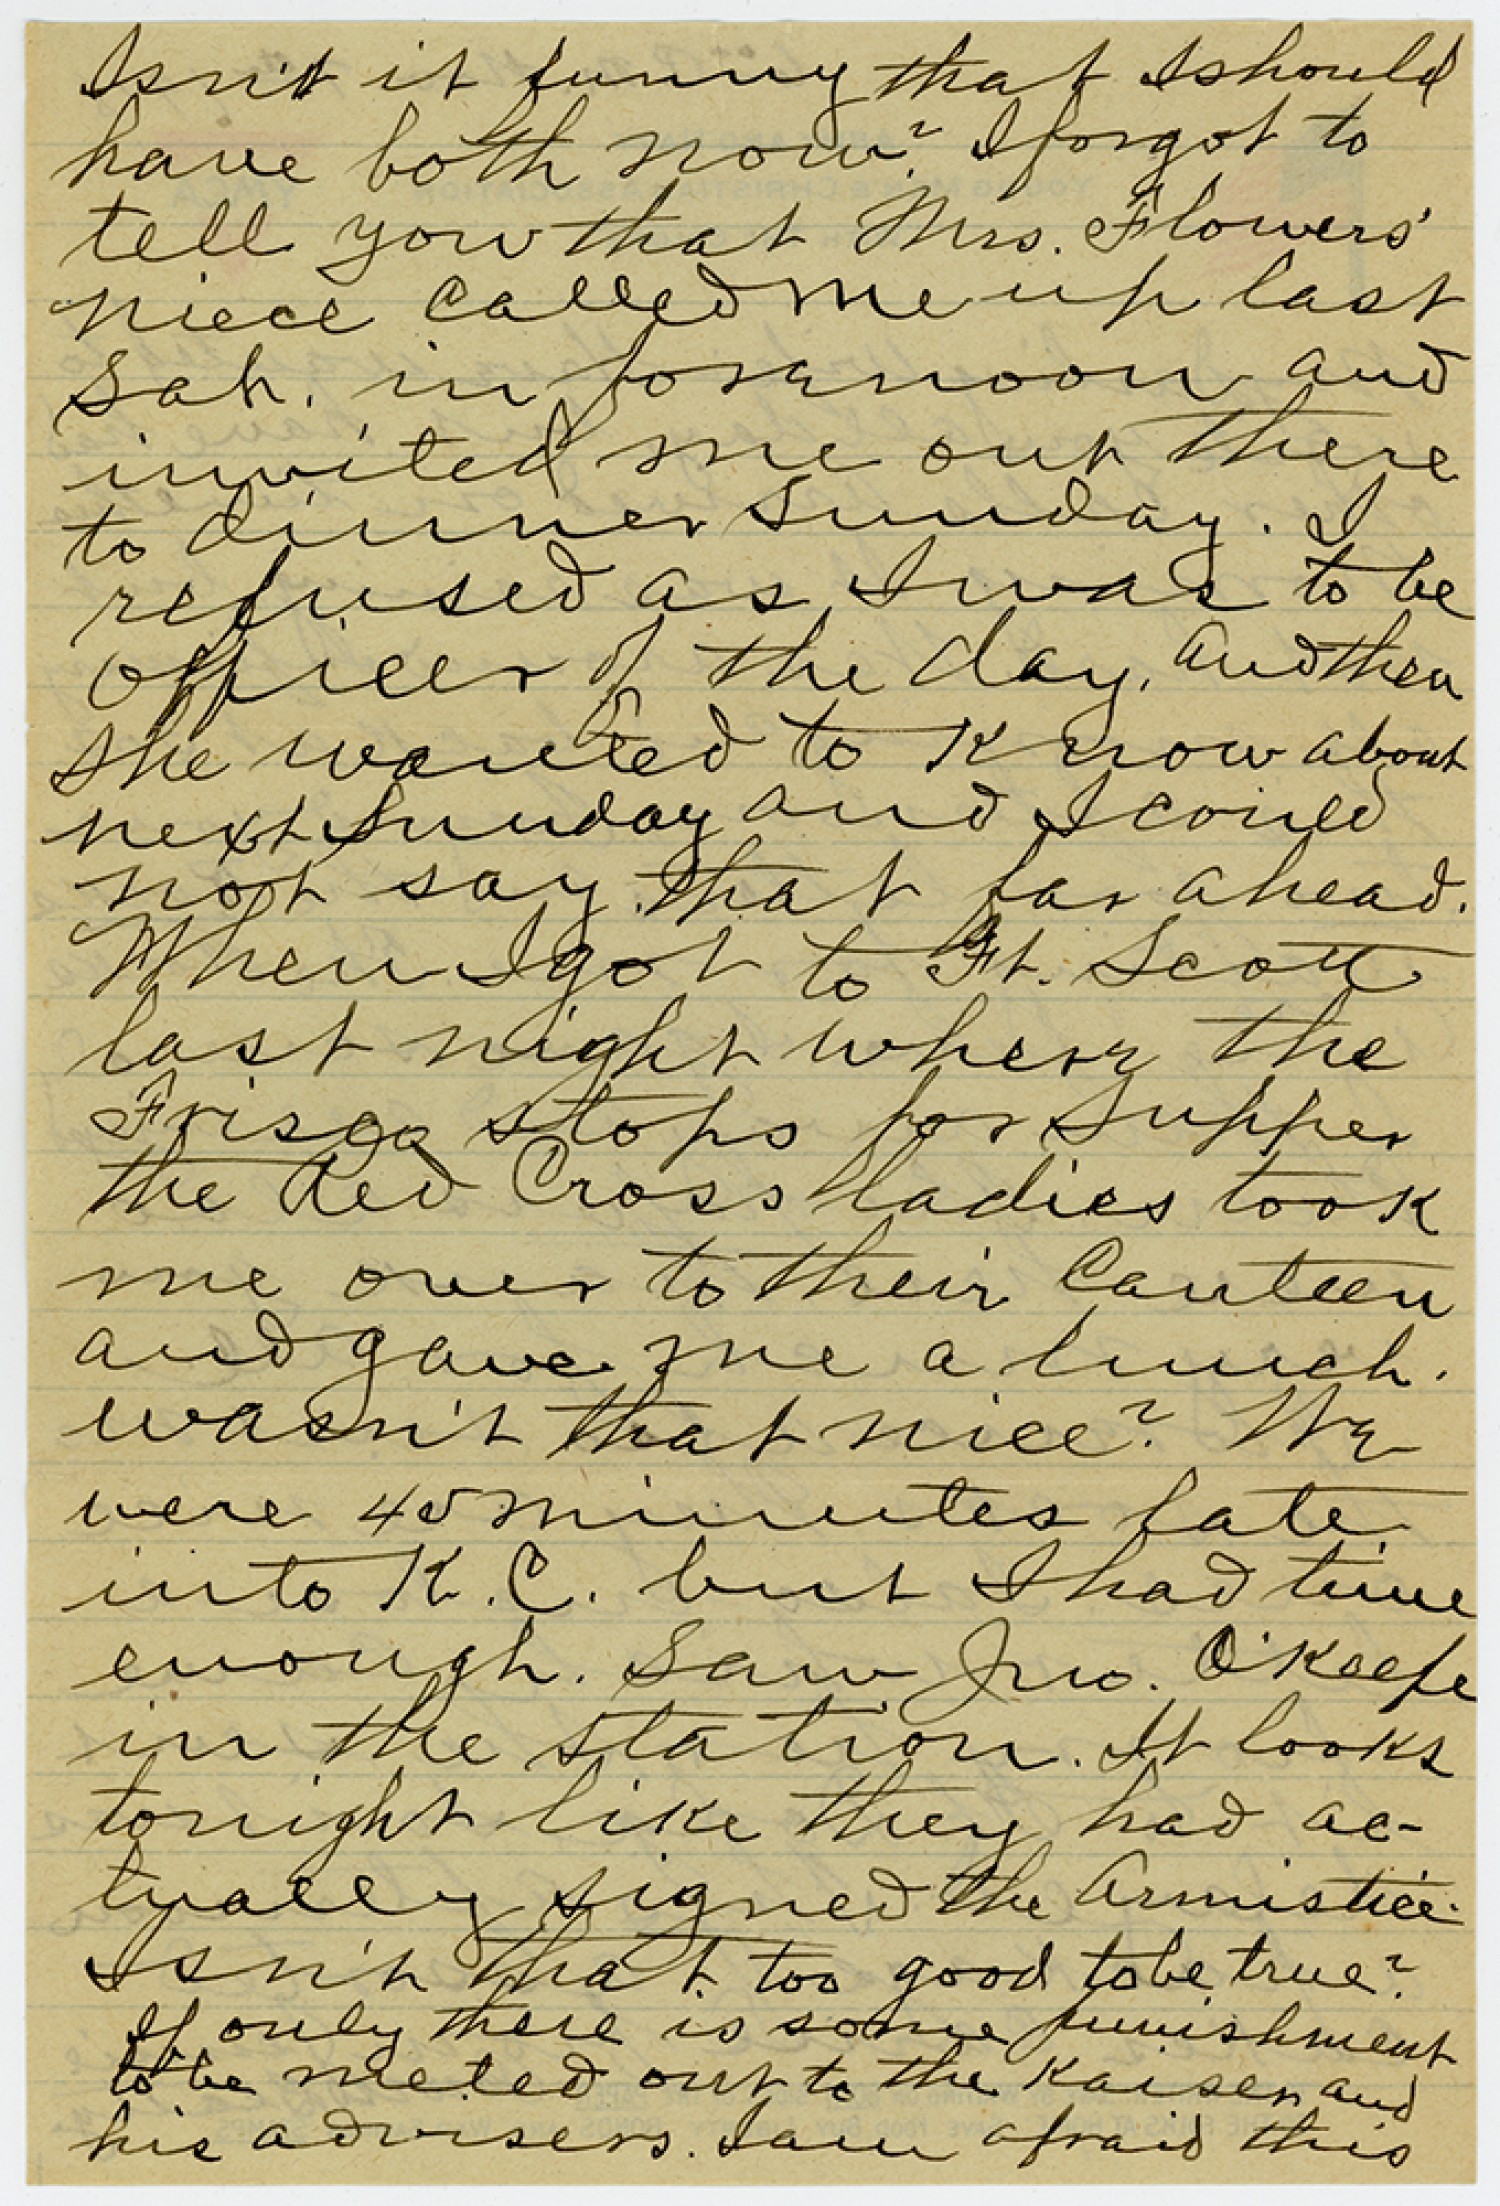 Isn't it funny that I should
have both now? I forgot to
tell you that Mrs. Flowers'
niece called me up last
Sat. in forenoon and
invited me out there
to dinner Sunday. I
refused as I was to be
officer of the day, and then
she wanted to know about
next Sunday and I could
not say that far ahead.
When I got to Ft. Scott
last night where the
Frisco stops for supper
the Red Cross ladies took
me over to their Canteen
and gave me a lunch.
Wasn't that nice? We
were 45 minutes late
into K.C. but I had time
enough. Saw Jno. O'Keefe
in the station. It looks
tonight like they had ac-
tually signed the Armistice.
Isn't that too good to be true?
If only there is some punishment
to be meted out to the Kaiser and
his advisers. I am afraid this